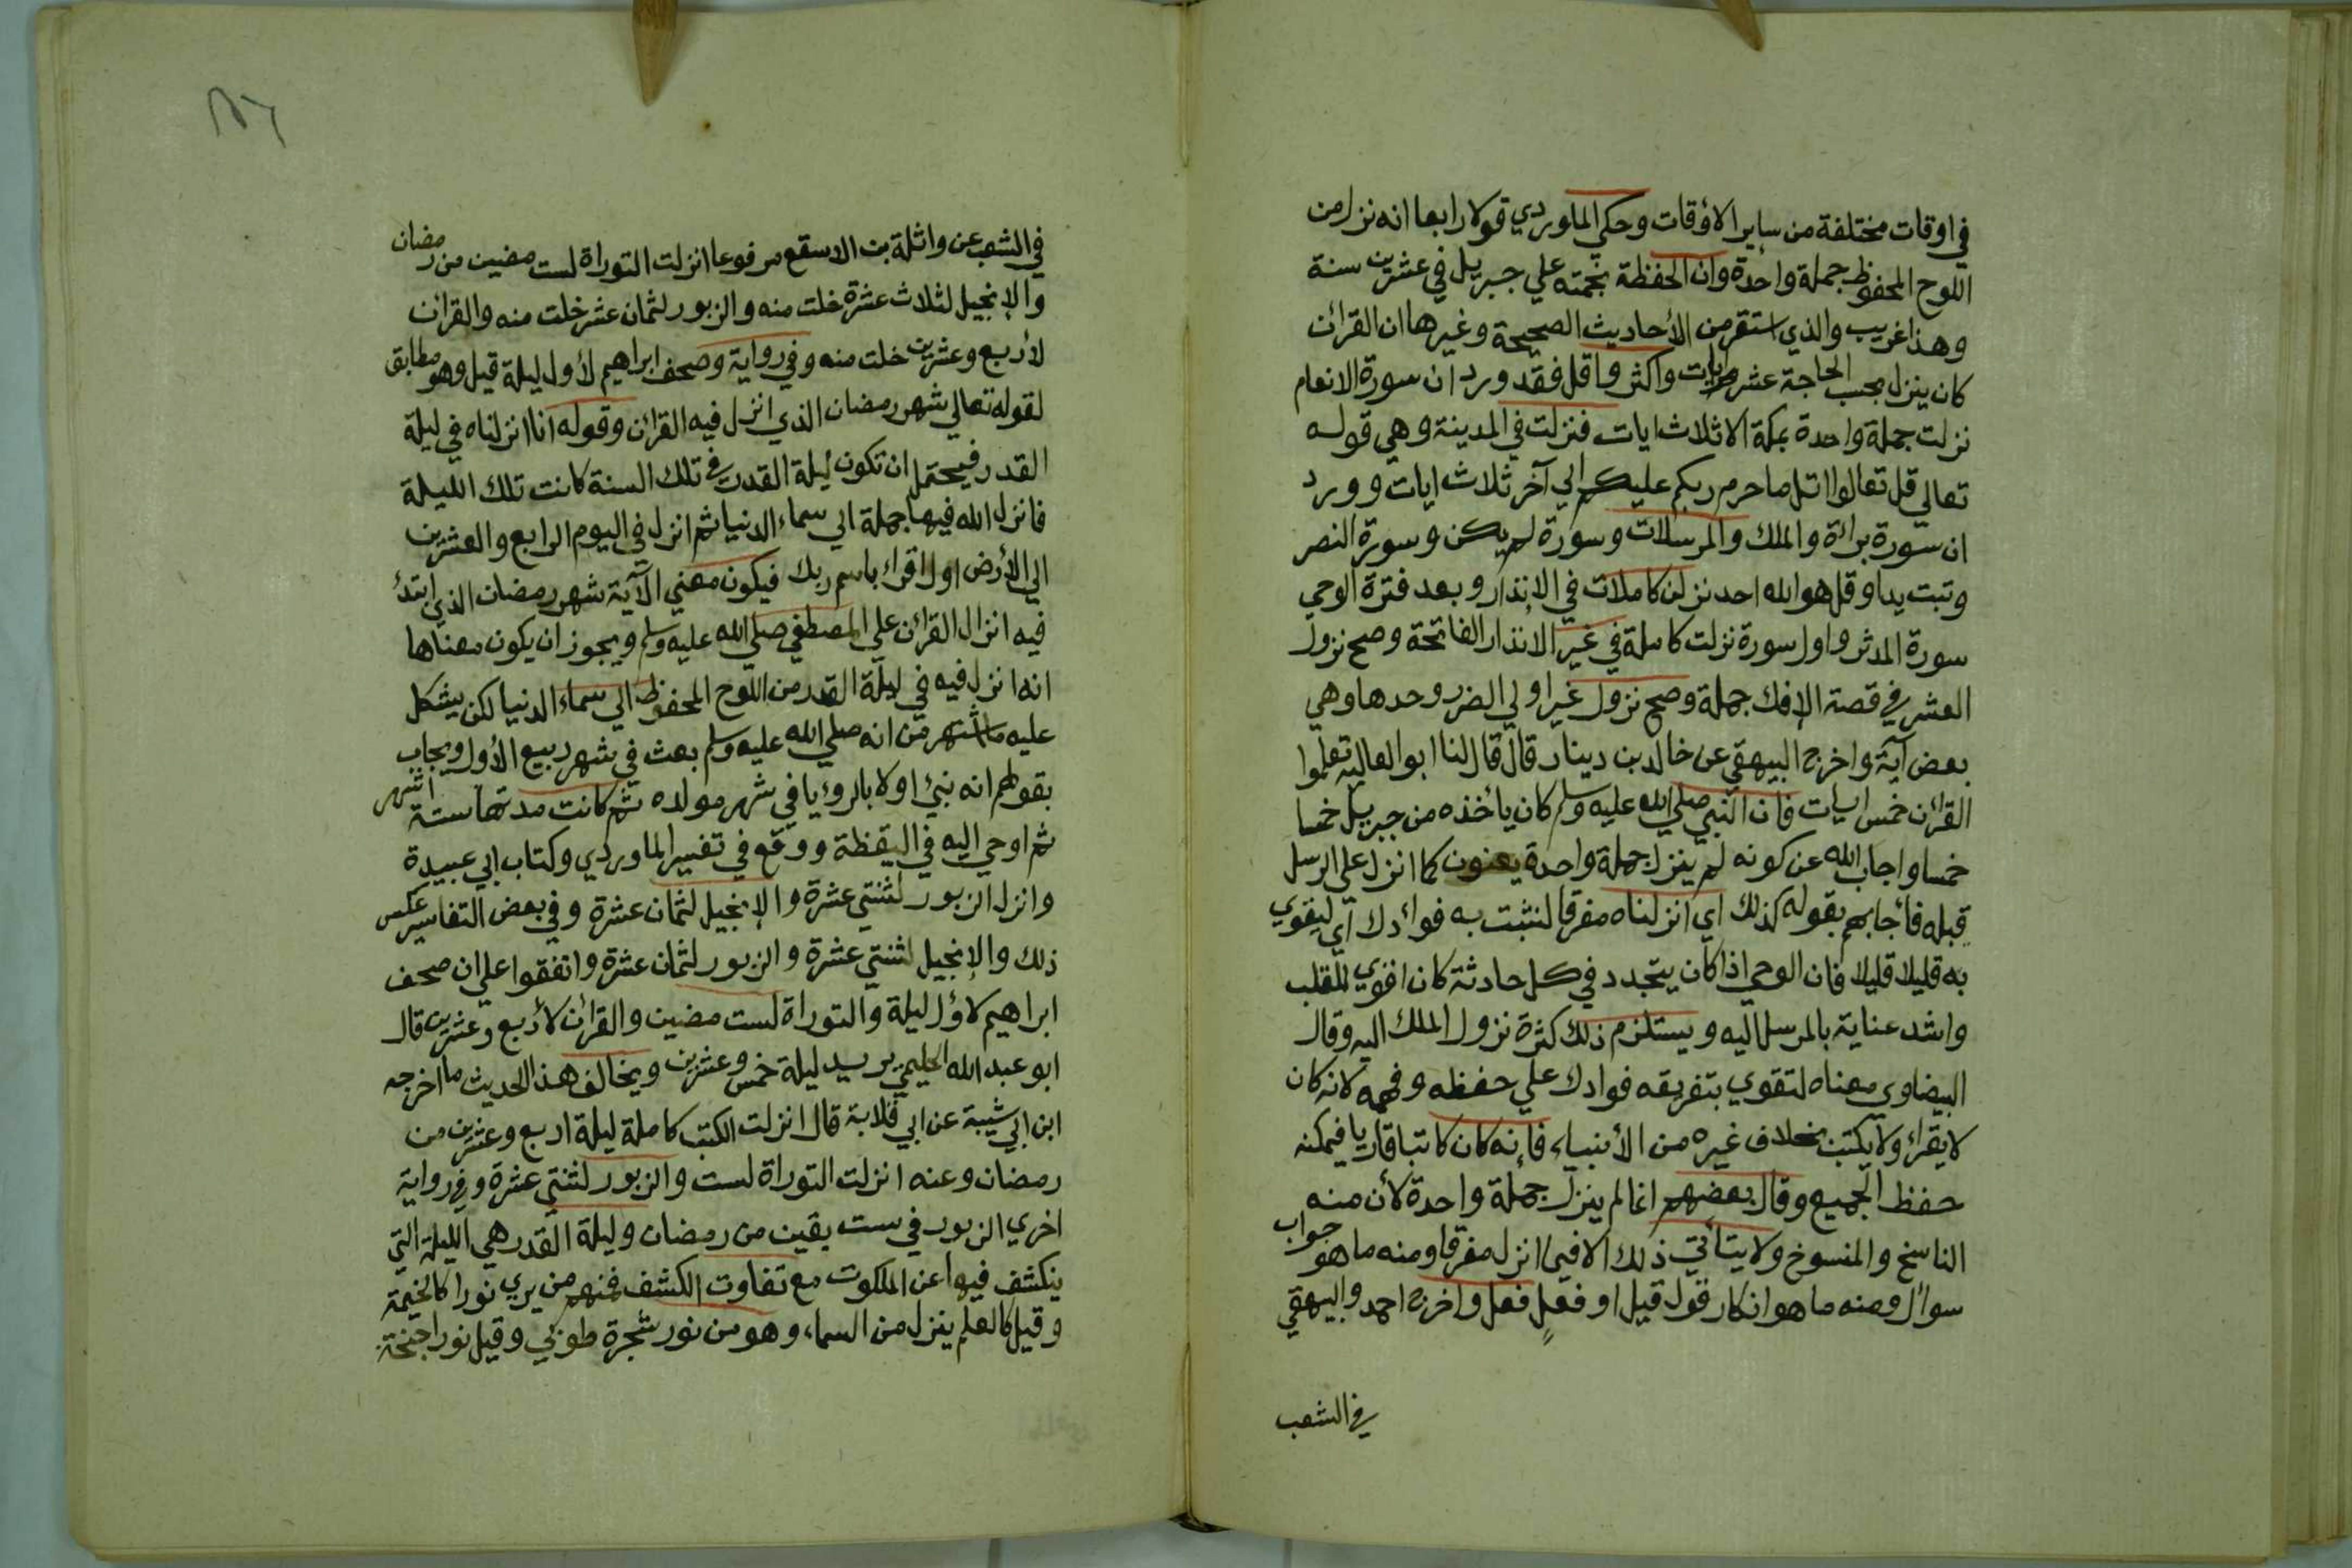 في اوقات مختلفة من ساير الأوقات وحكي الماوردي قولا رابعا انه نزل من
اللوح المحفوظ جملة واحدة وان الحفظة نجمته علي جبريل في عشرين سنة
وهذا غريب والذي استقر من الأحاديث الصحيحة وغيرها ان القرائن
كان ينزل بحسب الحاجة عشر ايات واكثر واقل فقد ورد ان سورة الانعام
نزلت جملة واحدة بمكة الا ثلاث ايات فنزلت في المدينة وهي قوله
تعالي قل تعالوا اتل ما حرم ربكم عليكم الي آخر ثلاث ايات وورد
ان سورة برائة والملك والمرسلات وسورة لم يكن وسورة النصر
وتبت يدا وقل هو الله احد نزلن كاملات في الإنذار وبعد فترة الوحي
سورة المدثر واول سورة نزلت كاملة في غير الانذار الفاتحة وصح نزول
العشر في قصة الإفك جملة وصح نزول غير اولي الضرر وحدها وهي
بعض آية واخرج البيهقي عن خالد بن دينار قال قال لنا ابو العالية تعلموا
القرائن خمس ايات فان النبي صلي الله عليه وسلم كان يأخذه من جبريل خمسا
خمسا واجاب الله عن كونه لم ينزل جملة واحدة يعنون كما انزل علي الرسل
قبله فأجابهم بقوله كذلك اي انزلناه مفرقا لنثبت به فوائدك اي ليقوي
به قليلا قليلا فان الوحي اذا كان يتجدد في كل حادثة كان اقوي للقلب
واشد عناية بالمرسل اليه ويستلزم ذلك كثرة نزول الملك اليه وقال
البيضاوي معناه لتقوي بتفريقه فوادك علي حفظه وفهمه لانه كان
لا يقرأ ولا يكتب بخلاف غيره من الأنبياء فإنه كان كاتبا قاريا فيمكنه
حفظ الجميع وقال بعضهم انما لم ينزل جملة واحدة لأن منه
الناسخ والمنسوخ ولا يتأتي ذلك الا فيما انزل مفرقا ومنه ما هو جواب
سوال ومنه ما هو انكار قول قيل او فعل فعل واخرج احمد والبيهقي
في الشعب
١٥٦
في الشعب عن واثلة بن الاسقع مرفوعا انزلت التوراة لست مضين من رمضان
والإنجيل لثلاث عشرة خلت منه والزبور لثمان عشر خلت منه والقرائن
لأربع وعشرين خلت منه وفي رواية وصحف ابراهيم لأول ليلة قيل وهو مطابق
لقوله تعالي شهر رمضان الذي انزل فيه القرائن وقوله انا انزلناه في ليلة
القدر فيحتمل ان تكون ليلة القدر في تلك السنة كانت تلك الليلة
فانزل الله فيها جملة الي سماء الدنيا ثم انزل في اليوم الرابع والعشرين
الي الأرض اول اقراء باسم ربك فيكون معني الآية شهر رمضان الذي ابتدئ
فيه انزال القرائن علي المصطفي صلي الله عليه وسلم ويجوز ان يكون معناها
انه انزل فيه في ليلة القدر من اللوح المحفوظ الي سماء الدنيا لكن يشكل
عليه ما اشتهر من انه صلي الله عليه وسلم بعث في شهر ربيع الأول ويجاب
بقولهم انه نبئ اولا بالرؤيا في شهر مولده ثم كانت مدتها ستة اشهر
ثم اوحي اليه في اليقظة ووقع في تفسير الماوردي وكتاب ابي عبيدة
وانزل الزبور لثنتي عشرة والإنجيل لثمان عشرة وفي بعض التفاسير عكس
ذلك والإنجيل لثنتي عشرة والزبور لثمان عشرة واتفقوا علي ان صحف
ابراهيم لأول ليلة والتوراة لست مضين والقرائن لأربع وعشرين قال
ابو عبد الله الحليمي يريد ليلة خمس وعشرين ويخالف هذا الحديث ما اخرجه
ابن ابي شيبة عن ابي قلابة قال انزلت الكتب كاملة ليلة اربع وعشرين من
رمضان وعنه انزلت التوراة لست والزبور لثنتي عشرة وفي رواية
اخري الزبور في ست بقين من رمضان وليلة القدر هي الليلة التي
ينكشف فيها عن الملكوت مع تفاوت الكشف فمنهم من يري نورا كالخيمة
وقيل كالعلم ينزل من السماء وهو من نور شجرة طوبي وقيل نور اجنحة